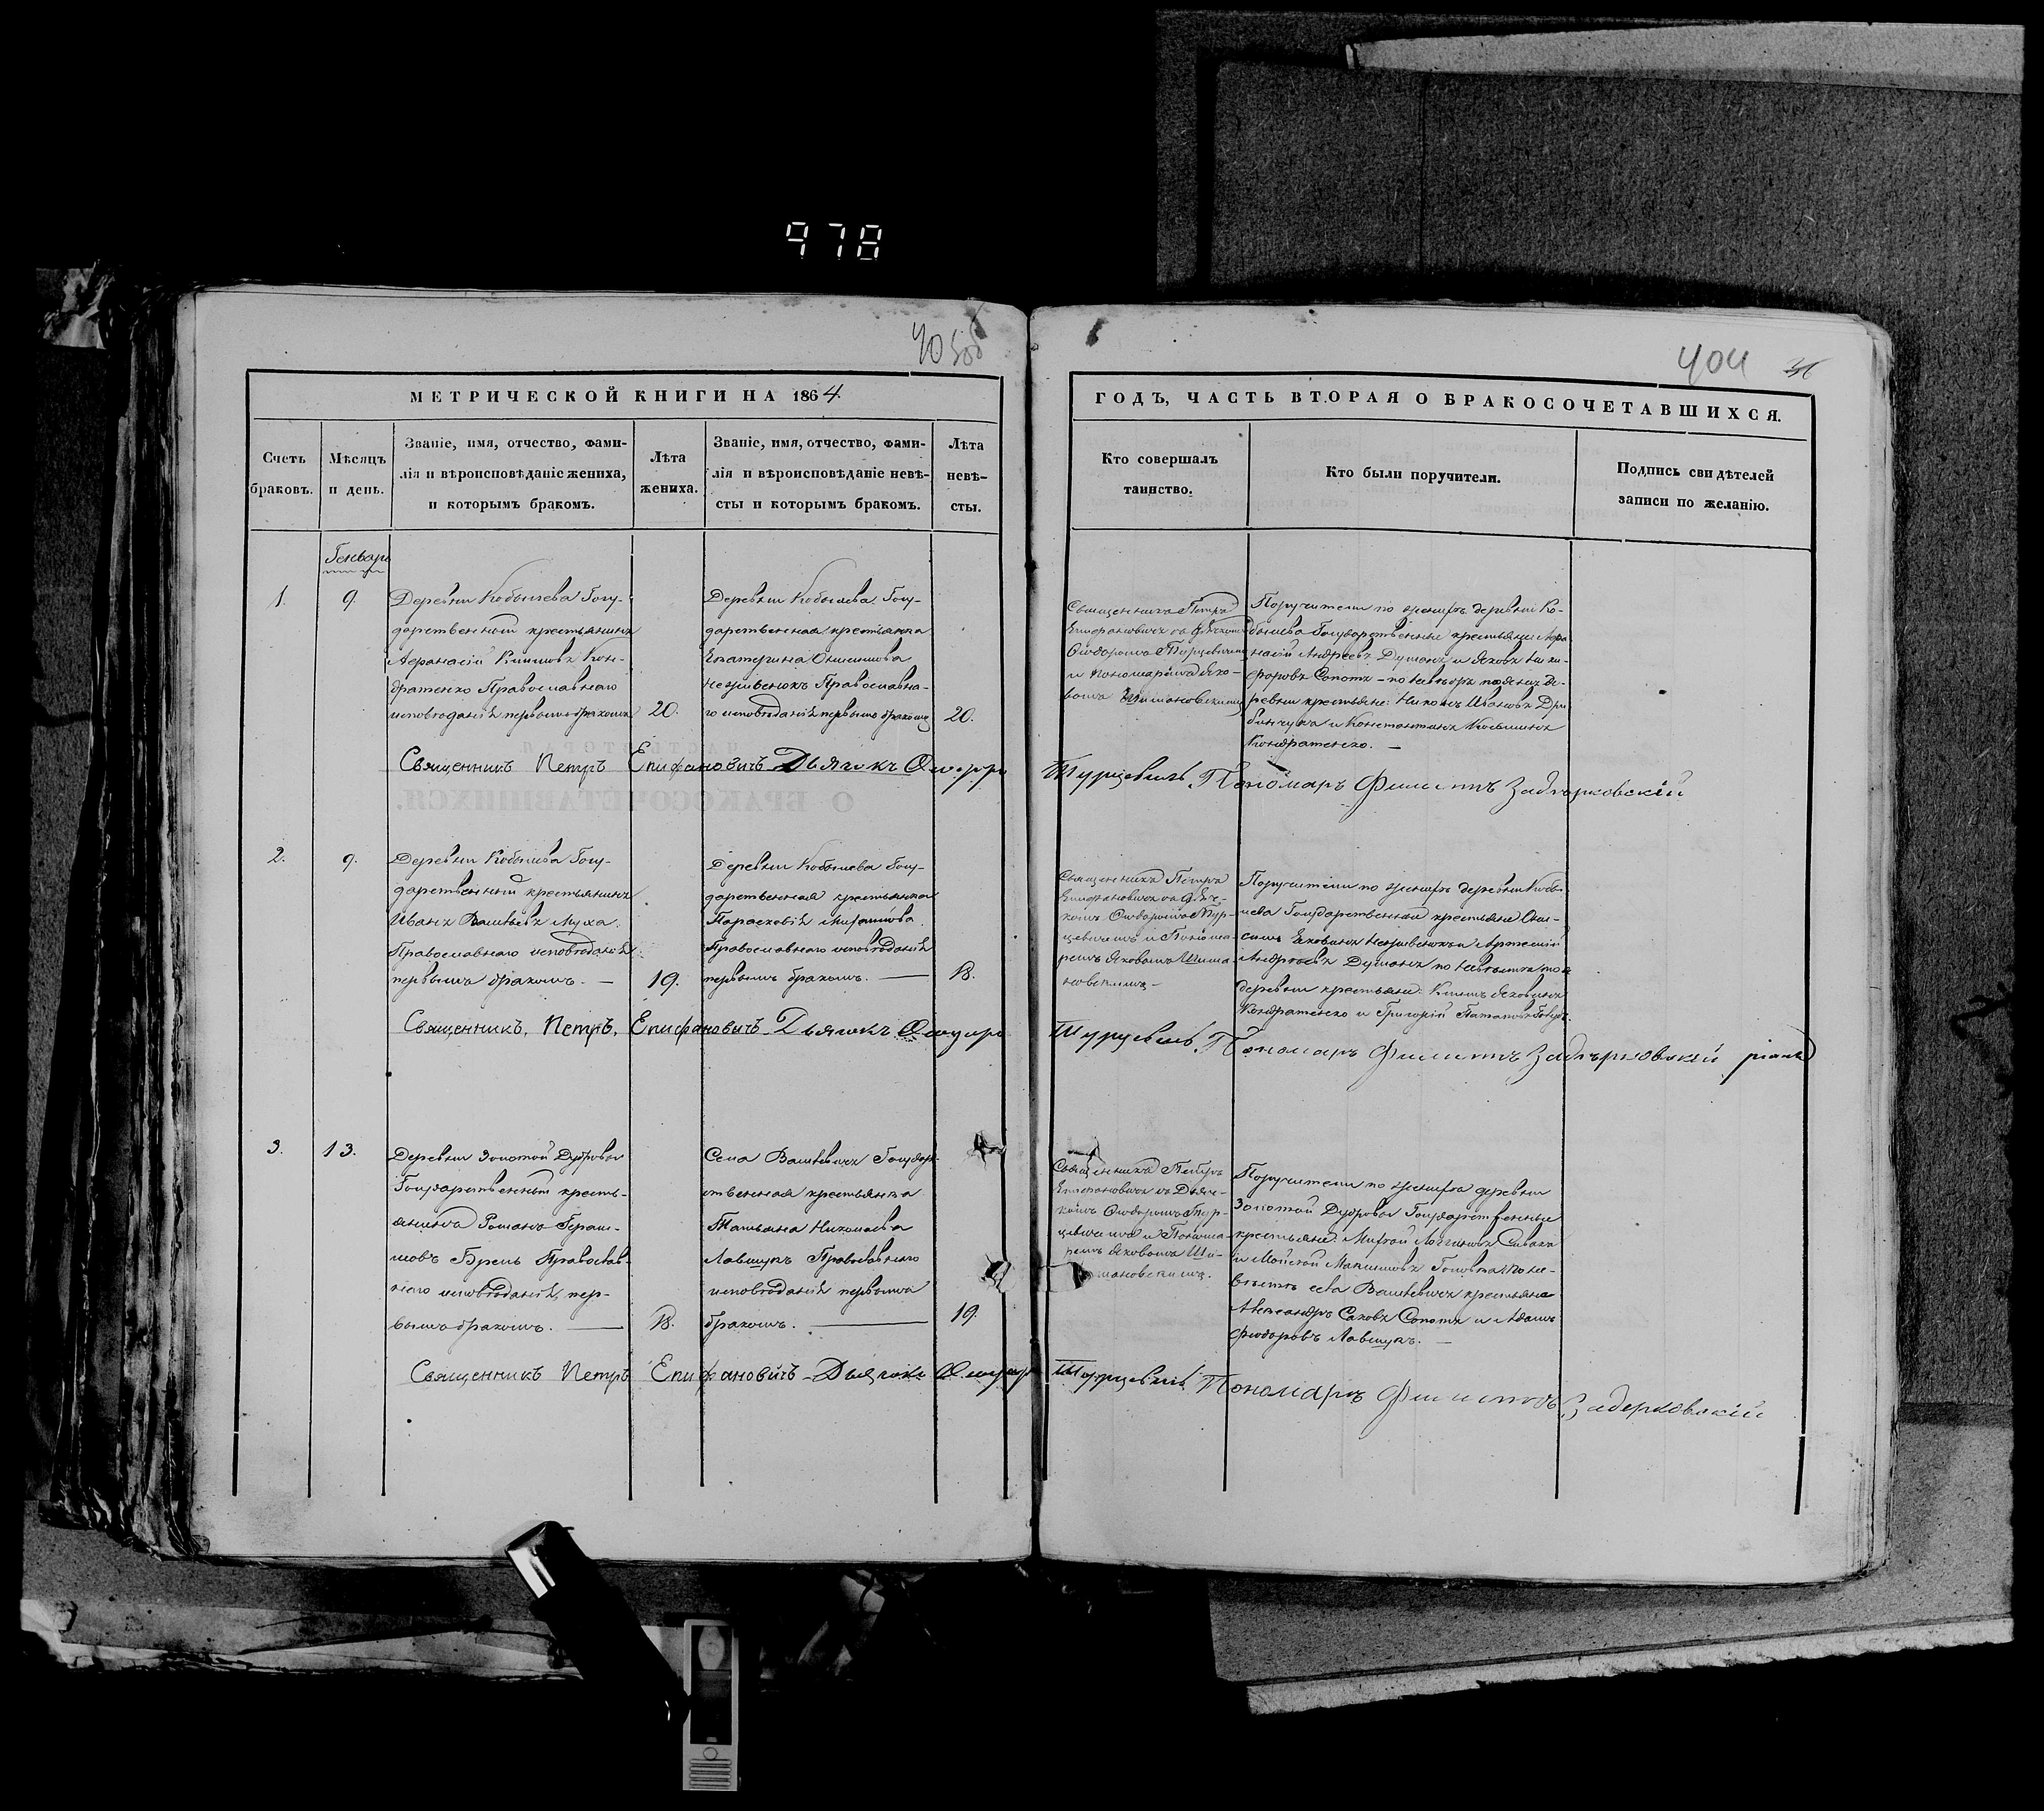 978
403об
404
МЕТРИЧЕСКОЙ КНИГИ НА 1864
ГОДЪ, ЧАСТЬ ВТОРАЯ О БРАКОСОЧЕТАВШИХСЯ.
Счетъ
браковъ.
Мѣсяцъ
и день.
Званіе, имя, отчество, фами-
лія и вѣроисповѣданіе жениха,
и которымъ бракомъ.
Лѣта
жениха.
Званіе, имя, отчество, фами-
лія и вѣроисповѣданіе невѣ-
сты и которымъ бракомъ.
Лѣта
невѣ-
сты.
Кто совершалъ
таинство.
Кто были поручители.
Подпись свидѣтелей
записи по желанію.
Генварь
1.
9.
Деревни Кобылева Госу-
дарственный крестьянинъ
Аѳанасій Климовъ Кон-
дратенко Православнаго
исповѣданія первымъ бракомъ
20.
Деревни Кобылева Госу-
дарственная крестьянка
Екатерина Онисимова
Неживенокъ Православна-
го исповѣданія первымъ бракомъ
20.
Священникъ Петръ
Епифановичъ съ Дьячкомъ
Ѳеодоромъ Турцевичемъ
и Пономаремъ Яко-
вомъ Шимановскимъ
Поручители по женихѣ деревни Ко-
былева Государственные крестьяне Аѳа-
насій Андреевъ Думанъ и Яковъ Ники-
форовъ Сопотъ - по невѣстѣ тояжъ де-
ревни крестьяне: Никонъ Ивановъ
и Константинъ Козьминъ
Кондратенко. —
Священникъ Петръ Епифановичъ Дьячокъ Ѳеодоръ
Турцевичъ Пономаръ Филиппъ Задѣрковскій
2.
9.
Деревни Кобылева Госу-
дарственный крестьянинъ
Иванъ Васильевъ Муха
Православнаго исповѣданія
первымъ бракомъ. —
19.
Деревни Кобылева Госу-
дарственная крестьянка
Парасковія
Православнаго исповѣданія
первымъ бракомъ. —
18.
Священникъ Петръ
Епифановичъ съ Дьяч-
комъ Ѳеодоромъ Тур-
цевичемъ и Понома-
ремъ Яковомъ Шима-
новскимъ -
Поручители по женихѣ деревни Кобы-
лева Государственные крестьяне Они-
симъ Яковинъ Неживенокъ и Артемій
Андреевъ Думанъ по невѣстѣ тоя
деревни крестьяне: Климъ Яковинъ
Кондратенко и Григорій
Священникъ Петръ Епифановичъ Дьячокъ Ѳеодоръ
Турцевичъ Пономаръ Филиппъ Задѣрковскій
3.
13.
Деревни Золотой Дубровы
Государственный кресть-
янинъ Романъ Гераси-
мовъ Брель Православ-
наго исповѣданія, пер-
вымъ бракомъ. —
18.
Села Васильевичъ Государ-
ственная крестьянка
Татьяна Николаева
Лавщукъ Православнаго
исповѣданія первымъ
бракомъ. —
19.
Священникъ Петръ
Епифановичъ съ Дьяч-
комъ Ѳеодоромъ Тур-
цевичемъ и Понома-
ремъ Яковомъ Ши-
мановскимъ.
Поручители по женихѣ деревни
Золотой Дубровы Государственные
крестьяне: Логгиновъ Сивака
и Мойсей Максимовъ Головка: По не-
вѣстѣ села Васильевичъ крестьяне
Александръ Саковъ Сопотъ и Адамъ
Ѳеодоровъ Лавщукъ. —
Священникъ Петръ Епифановичъ Дьячокъ Ѳеодоръ
Турцевичъ Пономаръ Филиппъ Задерковскій